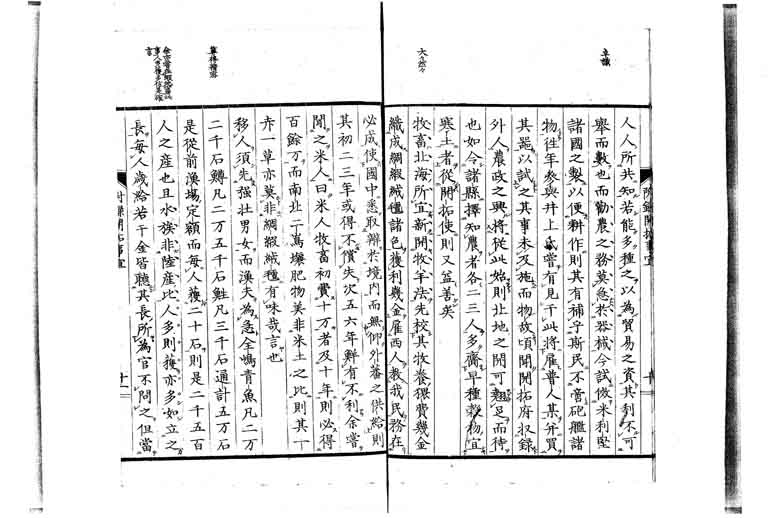 人人所共知若能多種之以為貿易之資其利不可
舉而數也而勸農之務莫急於器械今試倣米利堅
諸國之製以便耕作則其有補于斯民不啻砲艦諸
物往年參與井上 嘗有見于此將雇普人某并買
其器以試之其事未及施而物故頃聞開拓府収錄
外人農政之興將從此始則北地之開可翹足而待
也如今諸縣擇知農者各二三人多齎早種穀物宜
寒土者從開拓使則又益善矣
牧畜北海所宜新開牧羊法先校其牧養猥費幾金
織成綢緞絨氊諸色獲利幾金雇西人教我民務在
必成使國中悉取辦於境内而無仰外蕃之供給則
其初二三年或得不償失次五六年鮮有不利余嘗
聞之米人曰米人牧畜初費十万者及十年則必得
百餘万而南北二嶌壤肥物美非米土之比則其一
卉一草亦莫非綢緞絨氊有味哉言也
移人須先强壯男女而漁夫為急全嶋青魚凡二万
二千石鱒凡二万五千石鮭凡三千石通計五万石
是從前漁場定額而每人獲二十石則是二千五百
人之産也且水族非陸産比人多則獲亦多如立之
長每人歳給若干金皆聽其長所為官不問之但當
卓識
大然々
算得精密
附錄開拓事宜
十一